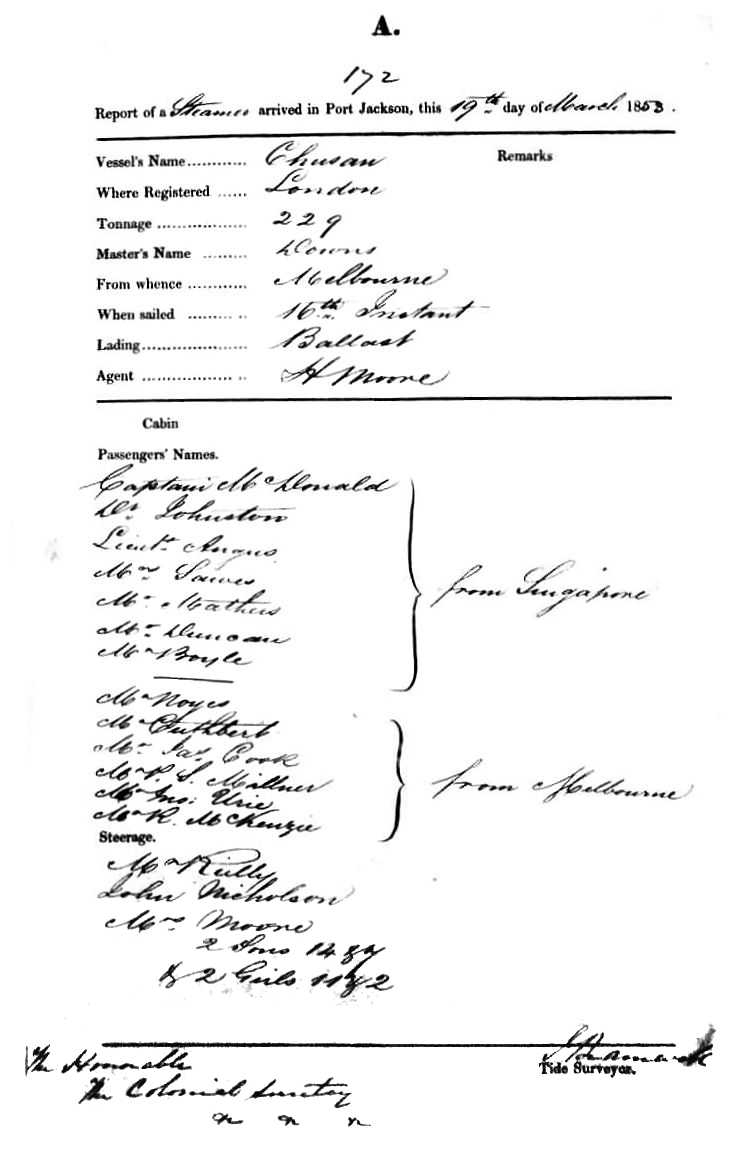 A.
172
Report of a Steamer arrived in Port Jackson, this 19th day of March 1853.
Remarks
Vessel's Name............ Chusan
Where Registered ...... London
Tonnage .................. 229
Master's Name ......... Downs
From whence ............ Melbourne
When sailed ......... .. 16th Instant
Lading..................... Ballast
Agent .................. .. H Moore
Cabin
Passengers' Names.
Captain McDonald
Dr. Johnston
Lieut. Angus
Mrs
Mr. Mathers
Mr. Duncan
Mr Boyle
from Singapore
Mr Noyes
Mr Cuthbert
Mr Jas Cook
Mr P. S. Millner
Mr Jno: Urie
Mr R. McKenzie
from Melbourne
Steerage.
Mr Reilly
John Nicholson
Mrs Moore
2 Sons 14 & 7
& 2 Girls 11 & 2
Tide Surveyor.
The Honorable
The Colonial